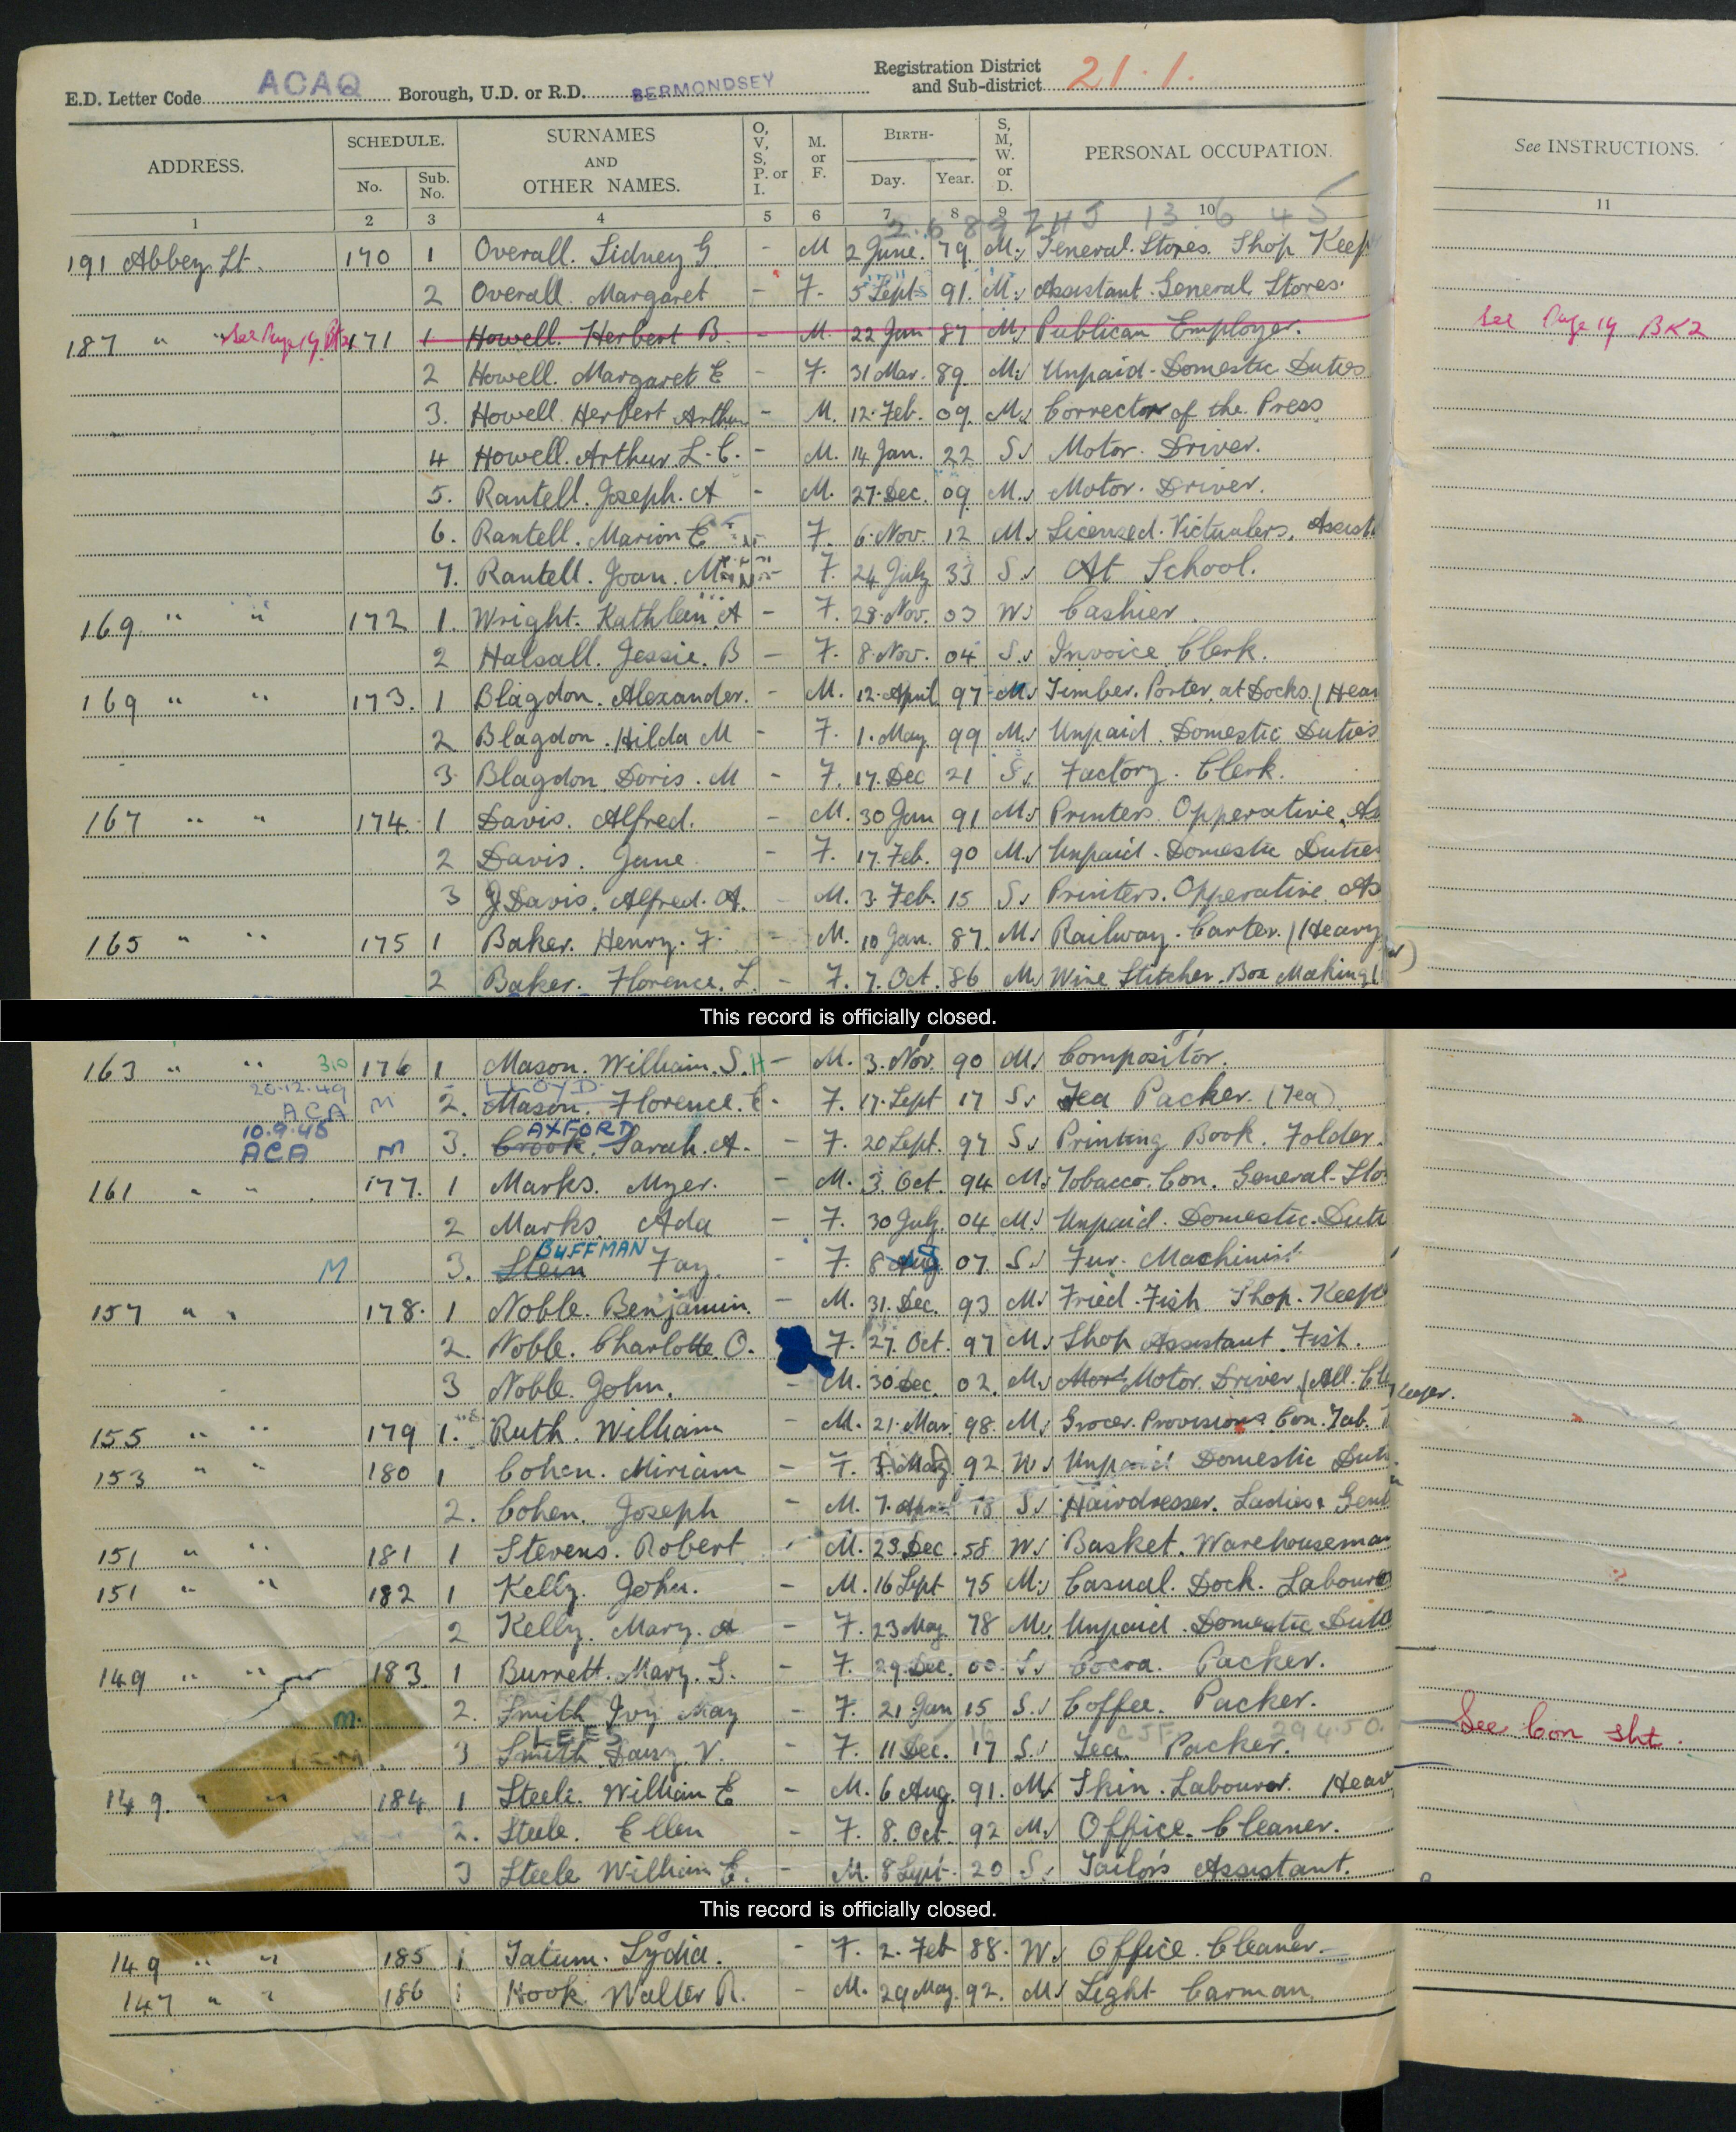 E.D. Letter Code ACAQ Borough, U.D. or R.D. BERMONDSEY Registration District and Sub-district 21.1.
ADDRESS. SCHEDULE. No. Sub. No. SURNAMES AND OTHER NAMES. O, V, S, P. or I. M. or F. BIRTH- Day. Year. S, M, W. or D. PERSONAL OCCUPATION. See INSTRUCTIONS.
1 2 3 4 5 6 7 8 9 10 11
191 Abbey St. 170 1 Overall. Sidney G - M 2 June. 79. M. General Stores. Shop Keep
2 Overall. Margaret - F. 5 Sept 91. M. Assistant General Stores.
187 " " See Page 19 Bk2 171 1 Howell. Herbert B. - M. 22 Jan 87 M. Publican Employer. See Page 19 BK2
2 Howell. Margaret E - F. 31 Mar. 89. M. Unpaid Domestic Duties
3. Howell. Herbert Arthur - M. 12. Feb. 09. M. Corrector of the Press
4 Howell. Arthur. L. C. - M. 14 Jan. 22 S. Motor. Driver.
5. Rantell. Joseph. A - M. 27. Dec. 09 M. Motor. Driver.
6. Rantell. Marion E F. 6. Nov. 12 M. Licensed. Victualers. Assist
7. Rantell. Joan. M F. 24 July 33 S. At School.
169 " " 172 1. Wright. Kathleen A - F. 28. Nov. 03 W. Cashier.
2 Halsall. Jessie. B - F. 8. Nov. 04 S. Invoice. Clerk.
169 " " 173. 1 Blagdon. Alexander. - M. 12. April 97 M. Timber. Porter. at Docks. (Hea
2 Blagdon. Hilda M - F. 1. May. 99 M. Unpaid. Domestic Duties
3 Blagdon. Doris. M - F. 17. Dec 21 S. Factory. Clerk.
167 " " 174. 1 Davis. Alfred. - M. 30 Jan 91 M. Printers. Opperative. As
2 Davis. Jane - F. 17. Feb. 90 M. Unpaid. Domestic Duties
3 Davis. Alfred. A. - M. 3. Feb. 15 S. Printers. Opperative. As
165 " " 175 1 Baker. Henry. F. - M. 10 Jan. 87. M. Railway. Carter. (Heavy
2 Baker. Florence. L. - F. 7. Oct. 86 M. Wire Stitcher. Box Making (
This record is officially closed.
163 " " 176 1 Mason. William. S. H - M. 3. Nov. 90 M. Compositor.
20.12.49 ACA M 2. LLOYD Mason. Florence. E - F. 17. Sept 17 S. Tea Packer. (Tea)
10.9.45 ACA M 3. AXFORD Crook. Sarah. A. - F. 20 Sept. 97 S. Printing Book. Folder.
161 " " 177. 1 Marks. Myer. - M. 3. Oct. 94 M. Tobacco. Con. General. Sto
2 Marks. Ada - F. 30 July. 04 M. Unpaid. Domestic. Duti
M 3. BUFFMAN Stein Fay. - F. 8 Aug 07 S. Fur. Machinist
157 " " 178. 1 Noble. Benjamin. - M. 31. Dec. 93 M. Fried. Fish Shop. Keepe
2. Noble. Charlotte. O. F. 27. Oct. 97 M. Shop Assistant. Fish.
3 Noble. John. - M. 30 Dec. 02. M. Motor. Driver
155 " " 179 1. Ruth. William - M. 21. Mar 98. M. Grocer. Provisions. Con. Tob.
153 " " 180 1 Cohen. Miriam - F. May 92 W. Unpaid Domestic Duti
2. Cohen. Joseph - M. 7. April 18 S. Hairdresser. Ladies & Gent
151 " " 181 1 Stevens. Robert - M. 23. Dec. 58. W. Basket. Warehouseman
151 " " 182 1 Kelly. John. - M. 16 Sept 75 M. Casual. Dock. Laboure
2 Kelly. Mary. A - F. 23 May 78 M. Unpaid. Domestic Duti
149 " " 183. 1 Burrett. Mary. S. - F. 29. Dec. 00. S. Cocoa. Packer.
m. 2. Smith Ivy May - F. 21 Jan 15 S. Coffee. Packer. See Con Sht.
3 LEE Smith Daisy. V. - F. 11 Dec. 17 S. Tea. Packer. 29 4.50.
149. " " 184. 1 Steele. William E - M. 6 Aug. 91. M. Skin. Labourer. Heav
2. Steele. Ellen - F. 8. Oct. 92 M. Office. Cleaner.
3 Steele William E. - M. 8 Sept. 20 S. Tailor's Assistant.
This record is officially closed.
149 " " 185 1 Tatum. Lydia. - F. 2. Feb 88. W. Office. Cleaner.
147 " " 186 1 Hook Walter R. - M. 29 May. 92. M. Light Carman.